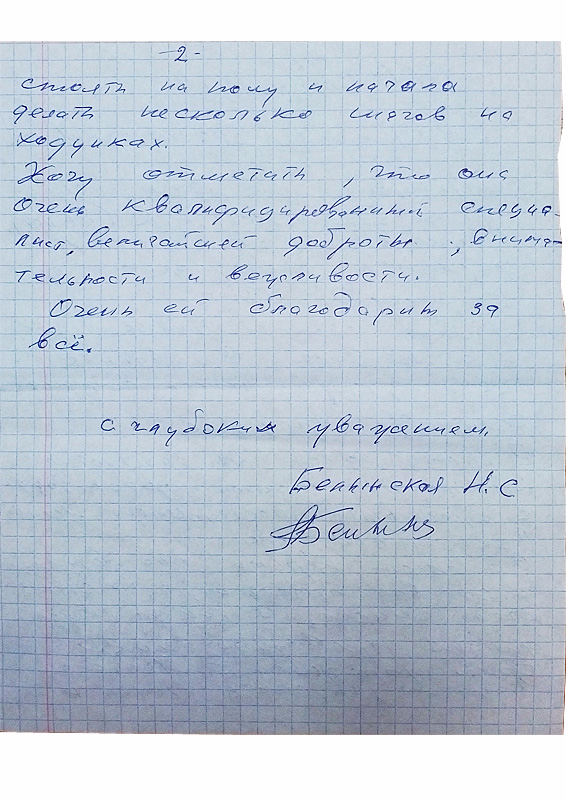 -2-
стоять на полу и начала
делать несколько шагов на
ходунках.
Хочу отметить, что она
очень квалифицированный специа-
лист, величайшей доброты, внима-
тельности и вежливости.
Очень ей благодарит за
всё.
С глубоким уважением.
Н.С